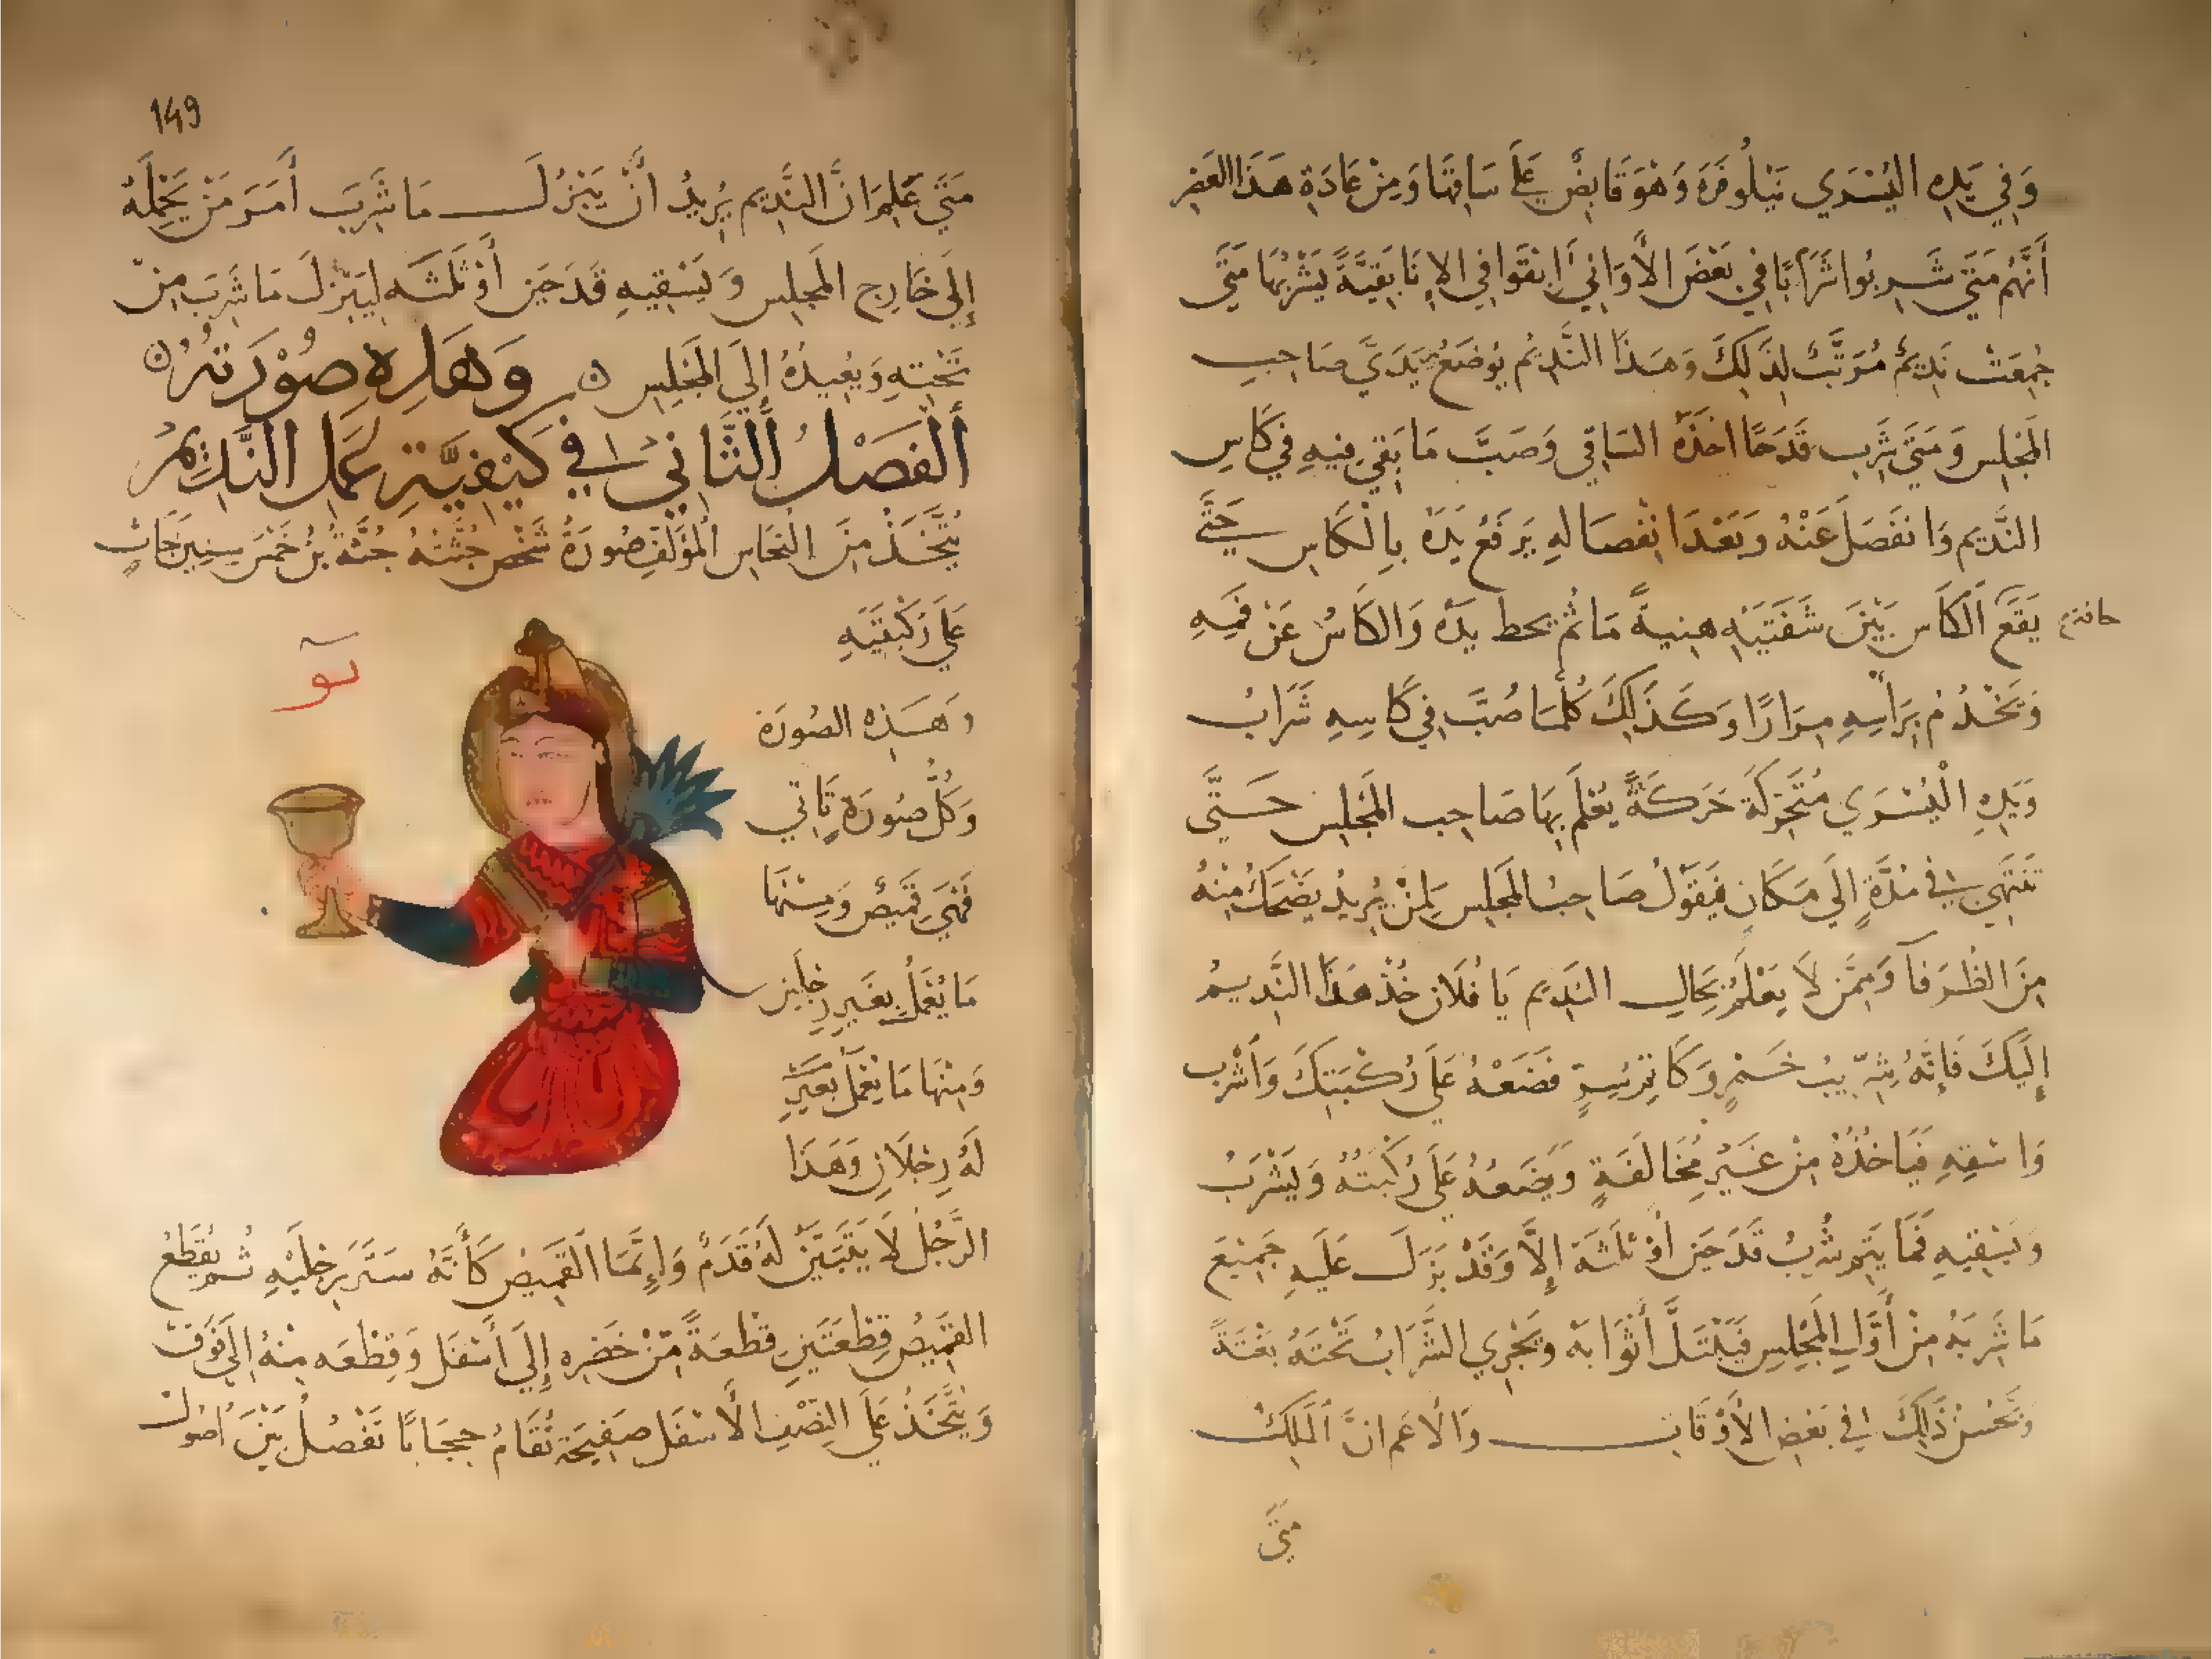 وَفِي يَدِهِ اليُسْرَي نَيْلُوفَرَه وَهُوَ قَابِضٌ عَلَى سَاقِهَا وَمِنْ عَادَةِ هَذَا العَصْرِ
أَنَّهُمْ مَتَى شَرِبُوا شَرَابًا فِي بَعْضِ الأَوَانِي ابْقَوا فِي الإِنَا بَقِيَّةً يَشْرَبُهَا مَتَى
جُمِعَتْ نَدِيمٌ مُرَتَّبٌ لِذَلِكَ وَهَذَا النَّدِيمُ يُوضَعُ بَيْنَ يَدَيَّ صَاحِبِ
المَجْلِسِ وَمَتَى شَرِبَ قَدَحًا اخَذَهُ السَّاقِي وَصَبَّ مَا بَقِيَ فِيهِ فِي كَاسِ
النَّدِيمِ وَانفَصَلَ عَنْهُ وَبَعْدَ انْفِصَالِهِ يَرفَعُ يَدَهُ بِالْكَاسِ حَتَّى
يَقَعَ الكَاس بَيْنَ شَفَتَيْهِ هنيةً مَا ثُمَّ يحط يَدَهُ وَالكَاسُ عَنْ فَمِهِ
وَيَخْدُمُ بِرَاسِهِ مِرَارًا وَكَذَلِكَ كُلَّمَا صُبَّ فِي كَاسِهِ شَرَابٌ
وَيَدِهِ الْيُسْرَي مُتَحَرِكَة حَرَكَةً يَعْلَمُ بِهَا صَاحِب المَجْلِسِ حَتَّى
تَنتَهِي فِي مُدَّةٍ إِلَى مَكَانٍ فَيَقُولُ صَاحِبُ المَجْلِسِ لِمَنْ يُرِيدُ يَضْحَكُ مِنْهُ
مِنَ الظُرَفَآ وَمِمَّنْ لَا يَعْلَمُ بِحَالِ النَدِيم يَا فُلَان خُذْ هَذَا النَّدِيمُ
إِلَيْكَ فَإِنَّهُ شِرِّيبُ خَمْرٍ وَكَاتِمُ سِرٍّ فَضَعْهُ عَلَى رُكْبَتِكَ وَاشْرَب
وَاسْقِهِ فَيَاخُذُهُ مِنْ غَيْرِ مُخَالَفَةٍ وَيَضَعُهُ عَلَى رُكْبَتُهُ وَيَشْرَبُ
وَيَسْقِيهِ فَمَا يَتِمُّ شُرْبُ قَدَحَين أَوْ ثَلثَة إِلَّا وَقَدْ نَزَلَ عَلَيهِ جَمِيْعَ
مَا شَرِبَهُ مِنْ أَوَّلِ المَجْلِسِ فَيَبْتَلَّ أَثْوَابهُ وَيَجْرِي الشَّرَابُ تَحْتَهُ بَغْتَةً
وَيَحْسُنُ ذَلِكَ فِي بَعْضِ الأَوْقَاتِ وَالْاعَم انَّ المَلِكَ
مَتَى
149
مَتَى عَلِمَ انَّ النَّدِيم يُرِيدُ انْ يَنْزِلَ مَا شَرِبَ أَمَرَ مَنْ يَحْمِلَهُ
إِلَى خَارِجِ المَجْلِسِ وَيَسْقِيهِ قَدَحَين أَوْ ثَلثَه لِيَنْزِلَ مَا شَرِبَ مِنْ
تَحْتِهِ وَيُعِيدُهُ إِلَى المَجْلِسِ ٥ وَهَذِهِ صُوْرَتُهُ ٥
أَلْفَصْلُ الثَّانِي فِي كَيْفِيَّةِ عَمَلِ النَّدِيْمِ
يُتَّخَذُ مِنَ النُحَاسِ المُؤَلَفِ صُورَةُ شَخْصٍ جُثَّتُهُ جُثَّةُ بْنُ خَمْسَ سِنِينَ جَاثٍ
عَلَى رُكْبَتَيْهِ
وهَذِهِ الصُورَة
وَكُلُّ صُورَةٍ تَاتي
فَهِيَ قَمِيصٌ وَمِنْهَا
مَا يُعْمَلُ بِغَيرِ رِجْلَين
وَمِنْهَا مَا يُعْمَلُ بِغَيْرِ
لَهُ رِجْلَانِ وَهَذَا
الرَّجُلُ لَا يَتَبَيَّنُ لَهُ قَدَمٌ وَإِنَّمَا القَمِيصُ كَأَنَّهُ سَتَرَ رِجْلَيْهِ ثُمَّ يُقطَعُ
القَمِيصُ قِطْعَتَينِ قِطْعَةً مِنْ خَصْرِهِ إِلَى أَسْفَل وَقِطْعَه مِنْهُ إِلَى فَوْقَ
وَيُتَّخَذُ عَلَى النِصْفِ الأَسْفَل صَفِيحَة تُقَامُ حِجَابًا تَفْصُلُ بَيْنَ أُصُولِ